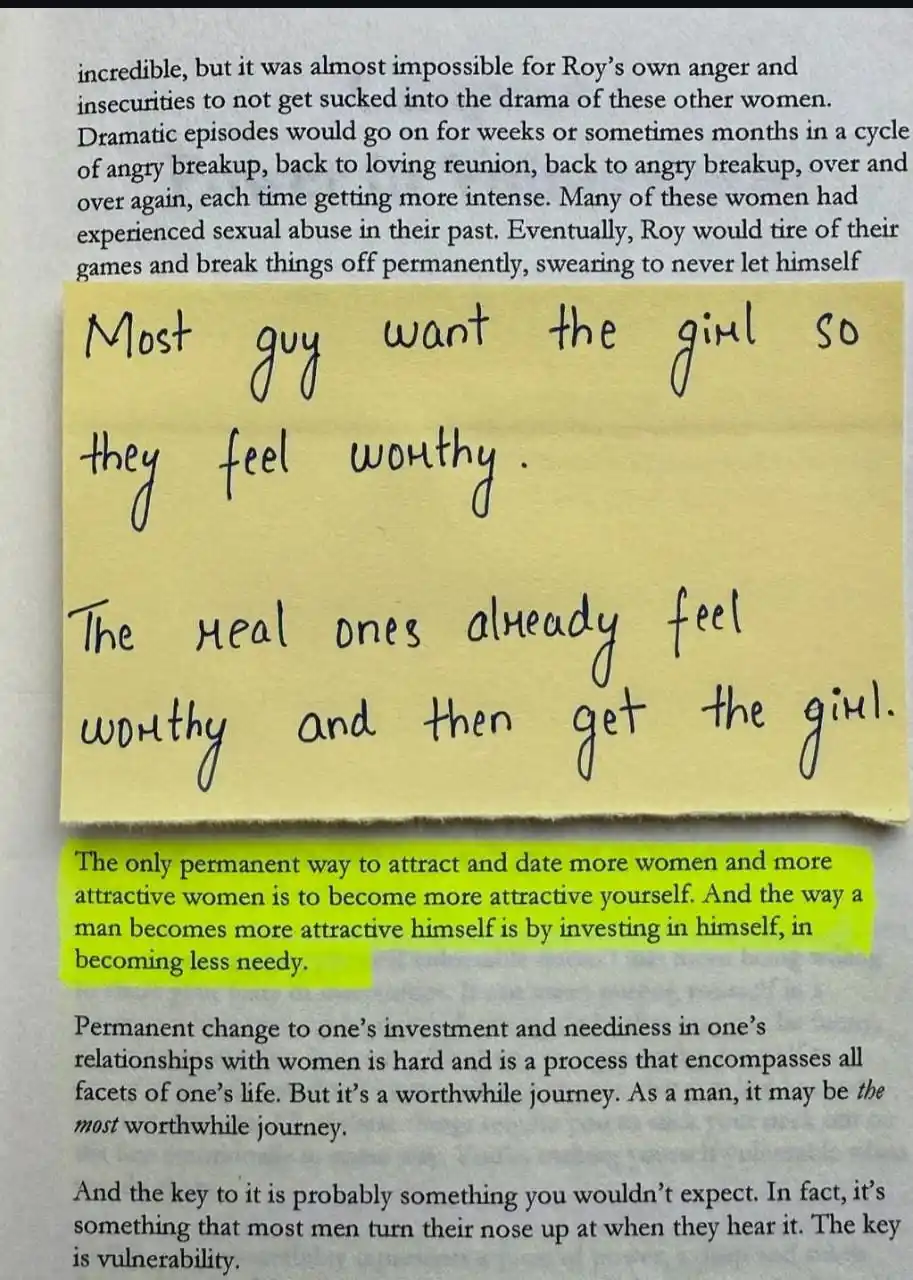 incredible, but it was almost impossible for Roy's own anger and
insecurities to not get sucked into the drama of these other women.
Dramatic episodes would go on for weeks or sometimes months in a cycle
of angry breakup, back to loving reunion, back to angry breakup, over and
over again, each time getting more intense. Many of these women had
experienced sexual abuse in their past. Eventually, Roy would tire of their
games and break things off permanently, swearing to never let himself
Most guy want the girl so
they feel worthy.
The real ones already feel
worthy and then get the girl.
The only permanent way to attract and date more women and more
attractive women is to become more attractive yourself. And the way a
man becomes more attractive himself is by investing in himself, in
becoming less needy.
Permanent change to one's investment and neediness in one's
relationships with women is hard and is a process that encompasses all
facets of one's life. But it's a worthwhile journey. As a man, it may be the
most worthwhile journey.
And the key to it is probably something you wouldn't expect. In fact, it's
something that most men turn their nose up at when they hear it. The key
is vulnerability.